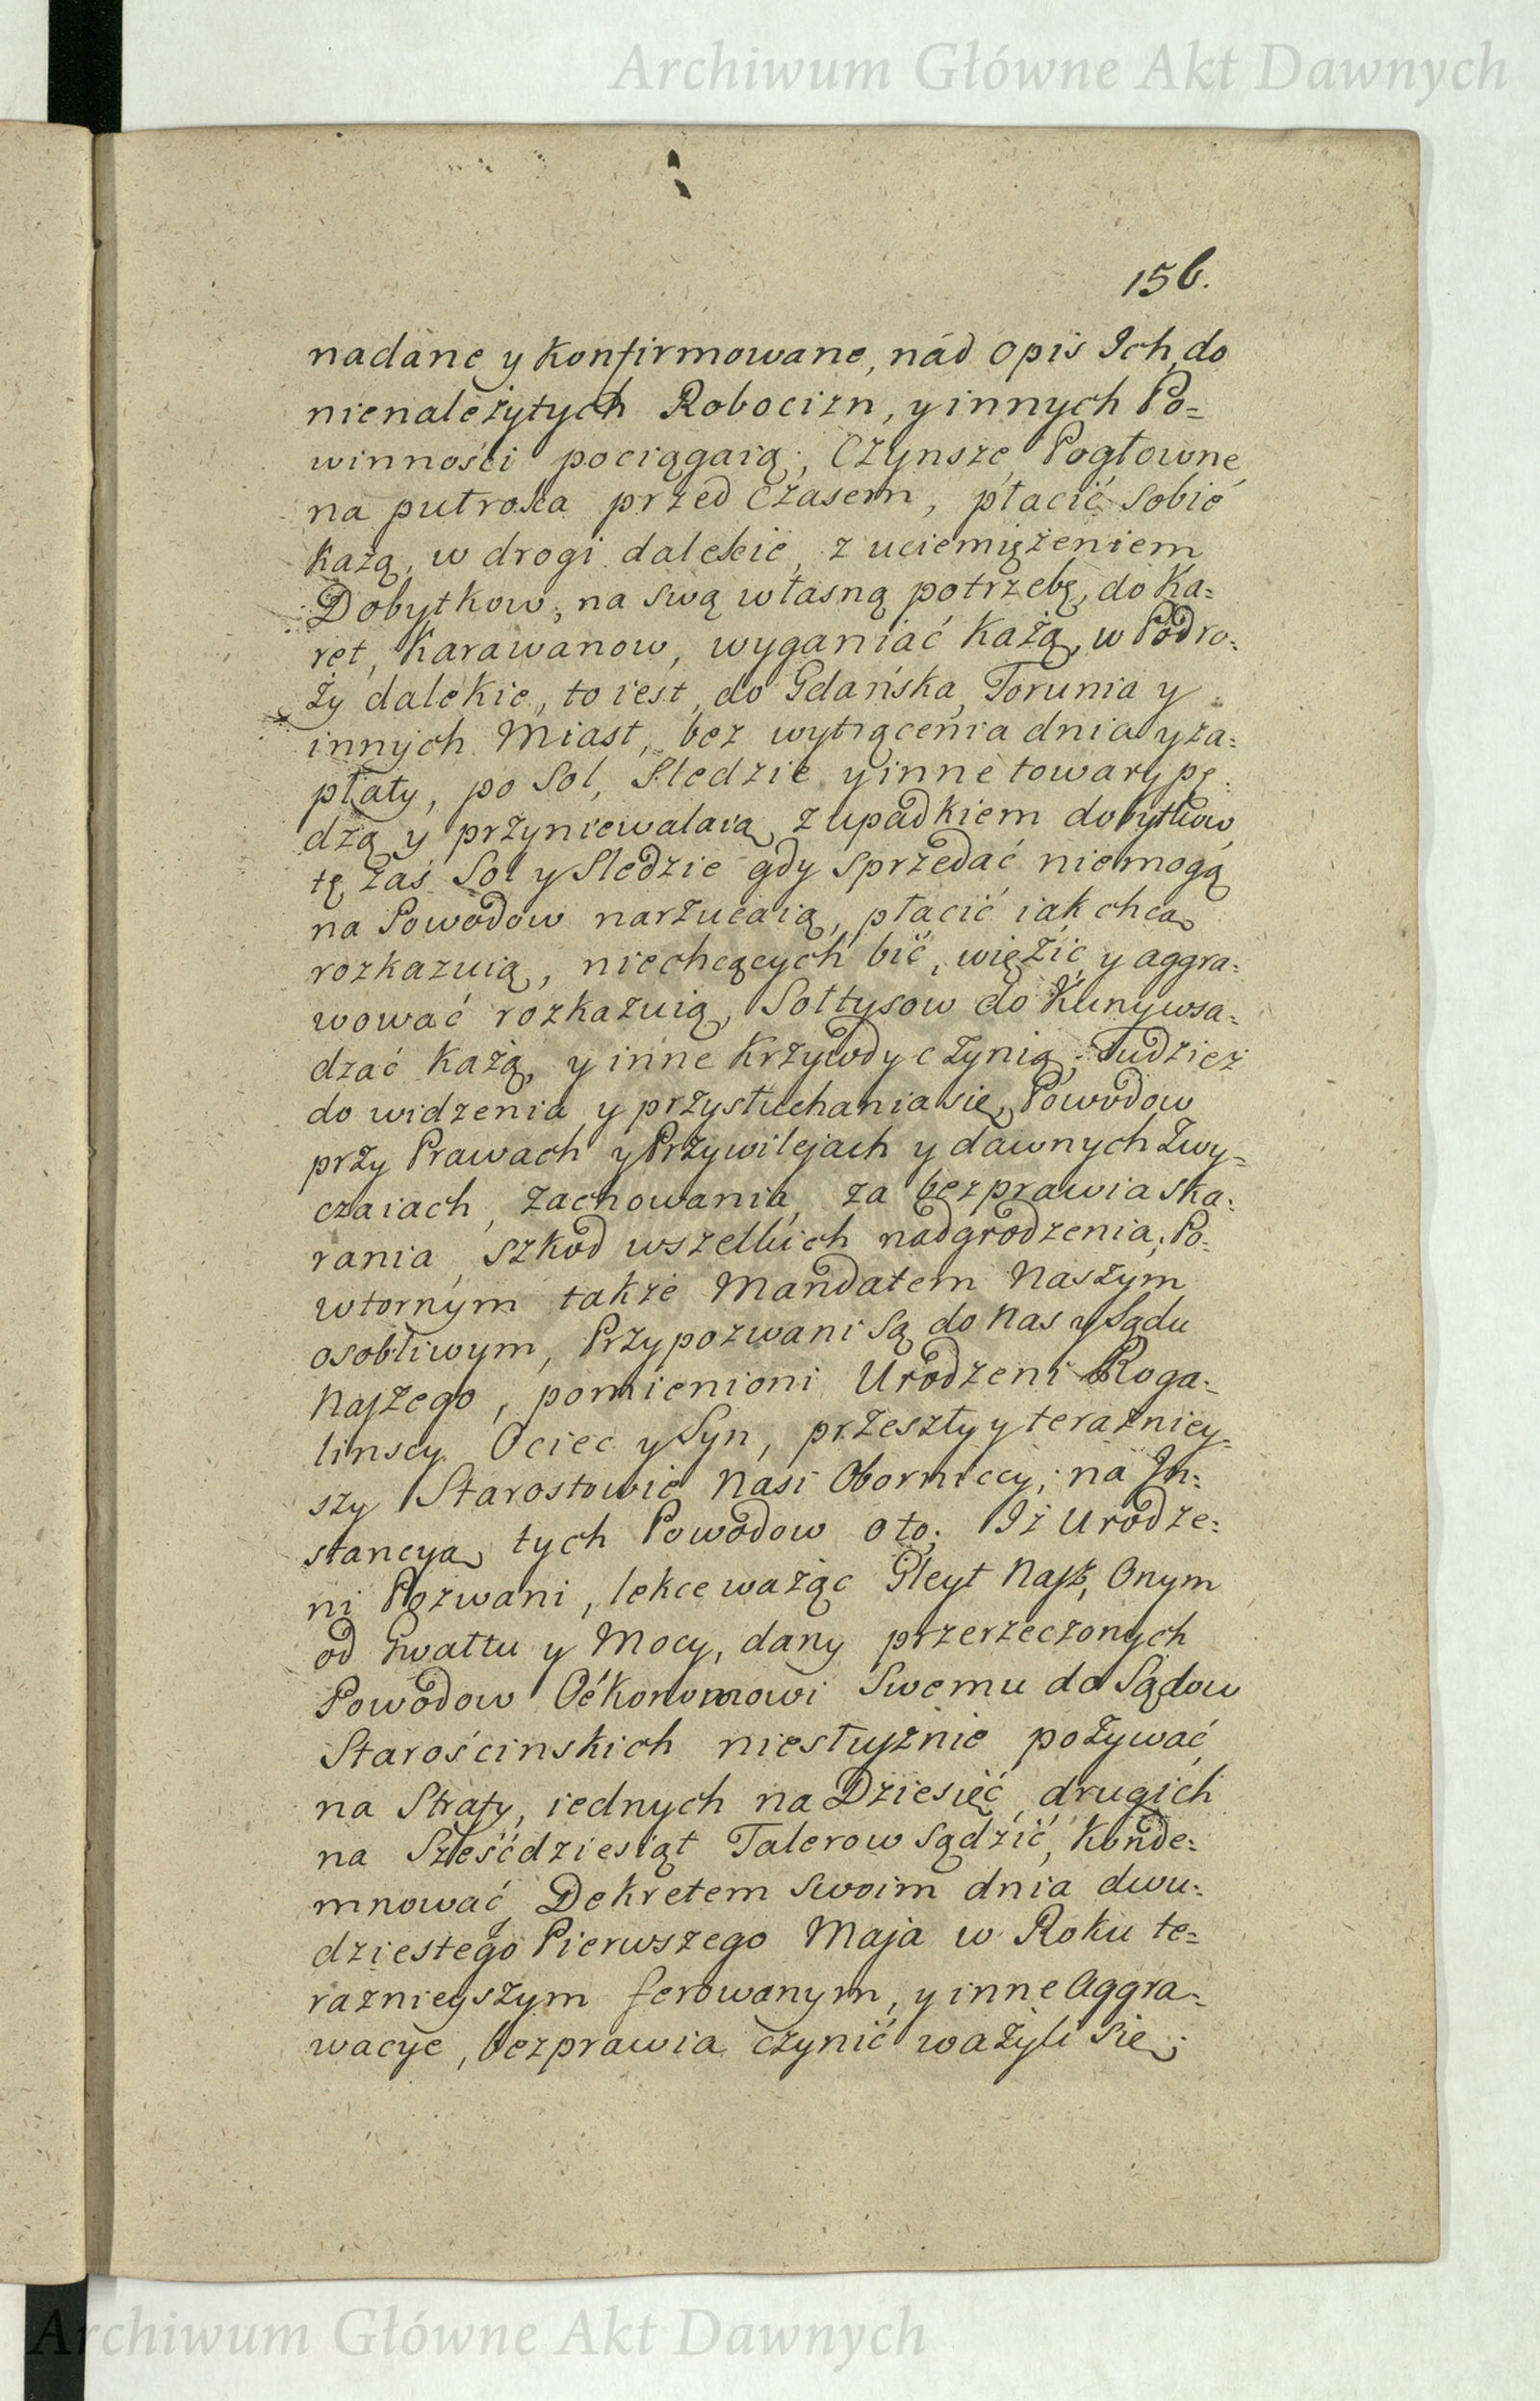 Archiwum Główne Akt Dawnych
156.
nadane y Konfirmowane, nád Opis Ich, do
nienależytych Robocizn, y innych Po=
winności pociągaią, Czynsze, Pogłowne
na pułroka przed Czasem, płacić Sobie
Każą, w drogi dalekie, z uciemiężeniem
Dobytkow, na swą własną potrzebę, do Ka=
ret, Karawanow, wyganiać Każą, w Podro=
ży dalekie, to iest, do Gdańska, Torunia y
innych Miast, bez wytrącenia dnia y za=
płaty, po Sol, Sledzie y inne towary pę=
dzą y przyniewalaią, z upadkiem dobytkow,
tę zaś Sol y Sledzie gdy Sprzedać niemogą
na Powodow narzucaią, płacić iak chcą
rozkazuią, niechcących bić, więzić y aggra=
wować rozkazuią, Sołtysow do Kuny wsa=
dzać Każą, y inne Krzywdy czynią; Tudziez
do widzenia y przysłuchania się, Powodow
przy Prawach y Przywilejach y dawnych Zwy=
czaiach, zachowania, za bezprawia ska=
rania, szkod wszelkich nadgrodzenia; Po=
wtornym także Mandatem Naszym
osobliwym, Przypozwani Są do Nas y Sądu
Naszego, pomienioni Urodzeni Roga=
linscy Ociec y Syn, przeszły y teraźniey=
szy Starostowie Nasi Oborniccy, na In=
stancyą tych Powodow oto; Iż Urodze=
ni Pozwani, lekce ważąc Gleyt Nasz, Onym
od Gwałtu y Mocy, dany przerzeczonych
Powodow Oekonomowi Swemu do Sądow
Starościnskich niesłusznie pozywać,
na Straty, iednych na Dziesięć, drugich
na Sześćdziesiąt Talerow Sądzić, Konde=
mnować, Dekretem swoim dnia dwu=
dziestego Pierwszego Maja w Roku te=
raznieyszym ferowanym, y inne Aggra=
wacye, bezprawia czynić ważyli Się;
Archiwum Główne Akt Dawnych